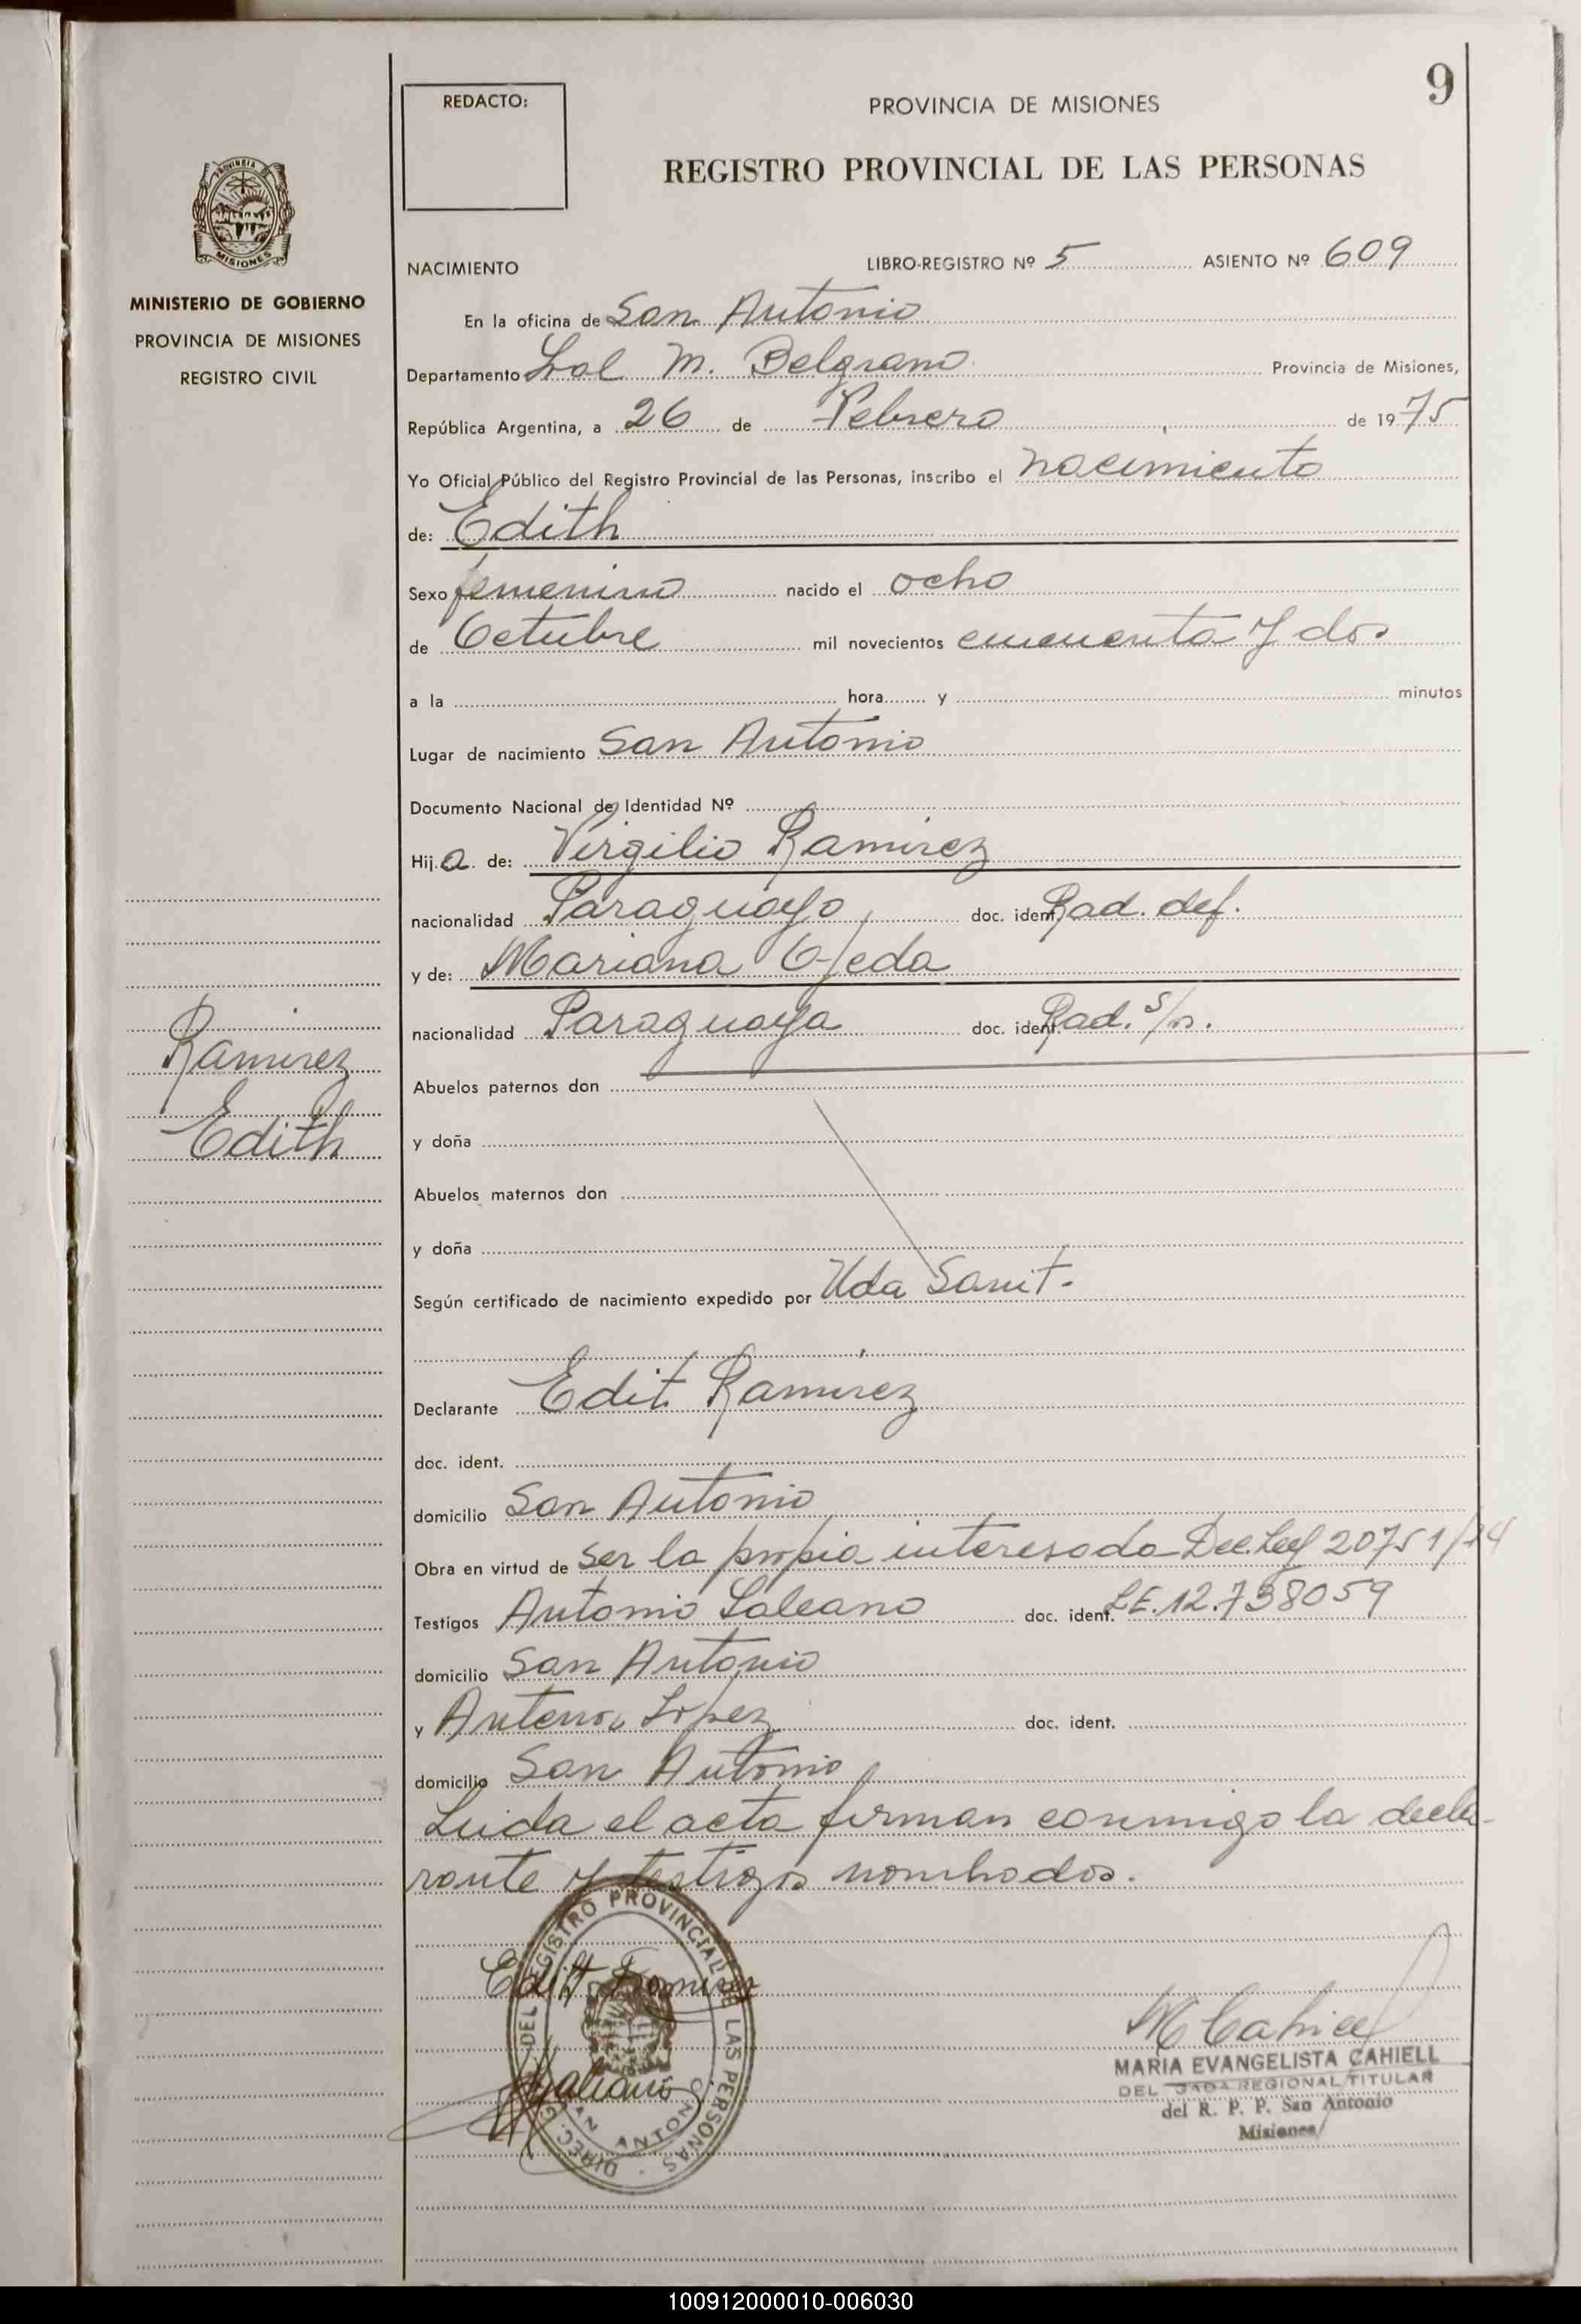 9
REDACTO:
PROVINCIA DE MISIONES
REGISTRO PROVINCIAL DE LAS PERSONAS
PROVINCIA
MISIONES
MINISTERIO DE GOBIERNO
PROVINCIA DE MISIONES
REGISTRO CIVIL
NACIMIENTO LIBRO-REGISTRO Nº 5 ASIENTO Nº 609
En la oficina de San Antonio
Departamento Gral M. Belgrano Provincia de Misiones,
República Argentina, a 26 de Febrero de 1975
Yo Oficial Público del Registro Provincial de las Personas, inscribo el nacimiento
de: Edith
Sexo femenino nacido el ocho
de Octubre mil novecientos cincuenta y dos
a la hora y minutos
Lugar de nacimiento San Antonio
Documento Nacional de Identidad Nº
Hija de: Virgilio Ramirez
nacionalidad Paraguayo, doc. ident. Rad. def.
y de: Mariana Ojeda
nacionalidad Paraguaya doc. ident. Rad. s/n.
Ramirez
Edith
Abuelos paternos don
y doña
Abuelos maternos don
y doña
Según certificado de nacimiento expedido por Uda Sanit.
Declarante Edit Ramirez
doc. ident.
domicilio San Antonio
Obra en virtud de ser la propia interesada Dec. Ley 20751/74
Testigos Antonio Galeano doc. ident. L.E. 12.738059
domicilio San Antonio
y Lopez doc. ident.
domicilio San Antonio
Leida el acta firman conmigo la decla-
rante y testigos nombrados.
DIREC. G DEL REGISTRO PROVINCIAL DE LAS PERSONAS
SAN ANTONIO
Edit Ramirez
Galeano
M Cahiell
MARIA EVANGELISTA CAHIELL
DEL REGIONAL TITULAR
del R. P. P. San Antonio
Misiones
100912000010-006030